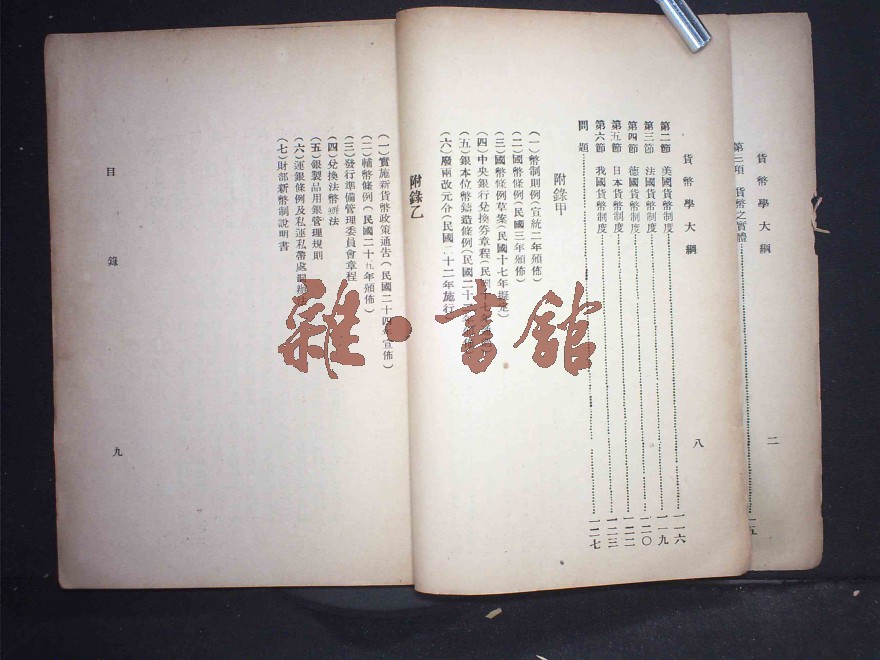 貨幣學大綱
二
第三項 貨幣之實體 一五
貨幣學大綱
八
第二節 美國貨幣制度 一一六
第三節 法國貨幣制度 一一九
第四節 德國貨幣制度 一二〇
第五節 日本貨幣制度 一二二
第六節 我國貨幣制度 一二三
問題 一二七
附錄甲
(一)幣制則例(宣統二年頒佈)
(二)國幣條例(民國三年頒佈)
(三)國幣條例草案(民國十七年擬定)
(四)中央銀行兌換券章程(民國十七年
(五)銀本位幣鑄造條例(民國二十
(六)廢兩改元令(民國二十二年施行
附錄乙
(一)實施新貨幣政策通告(民國二十四年宣佈)
(二)輔幣條例(民國二十五年頒佈)
(三)發行準備管理委員會章程
(四)兌換法幣辦法
(五)銀製品用銀管理規則
(六)運銀條例及私運私帶處罰辦法
(七)財部新幣制說明書
目錄
九
雜·書館